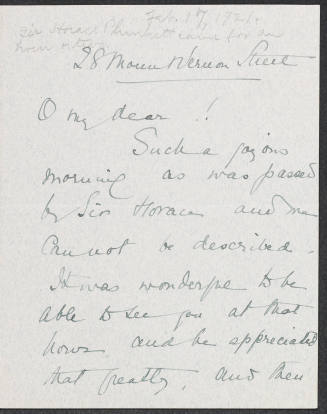 Feb. 17, 1921.
Sir Horace Plunkett came for an
hour
28 Mount Vernon Street
O my dear !!
Such a joyous
morning as was passed
by Sir Horace and me
cannot be described.
It was wonderful to be
able to see you at that
hour and he appreciated
that greatly, and then